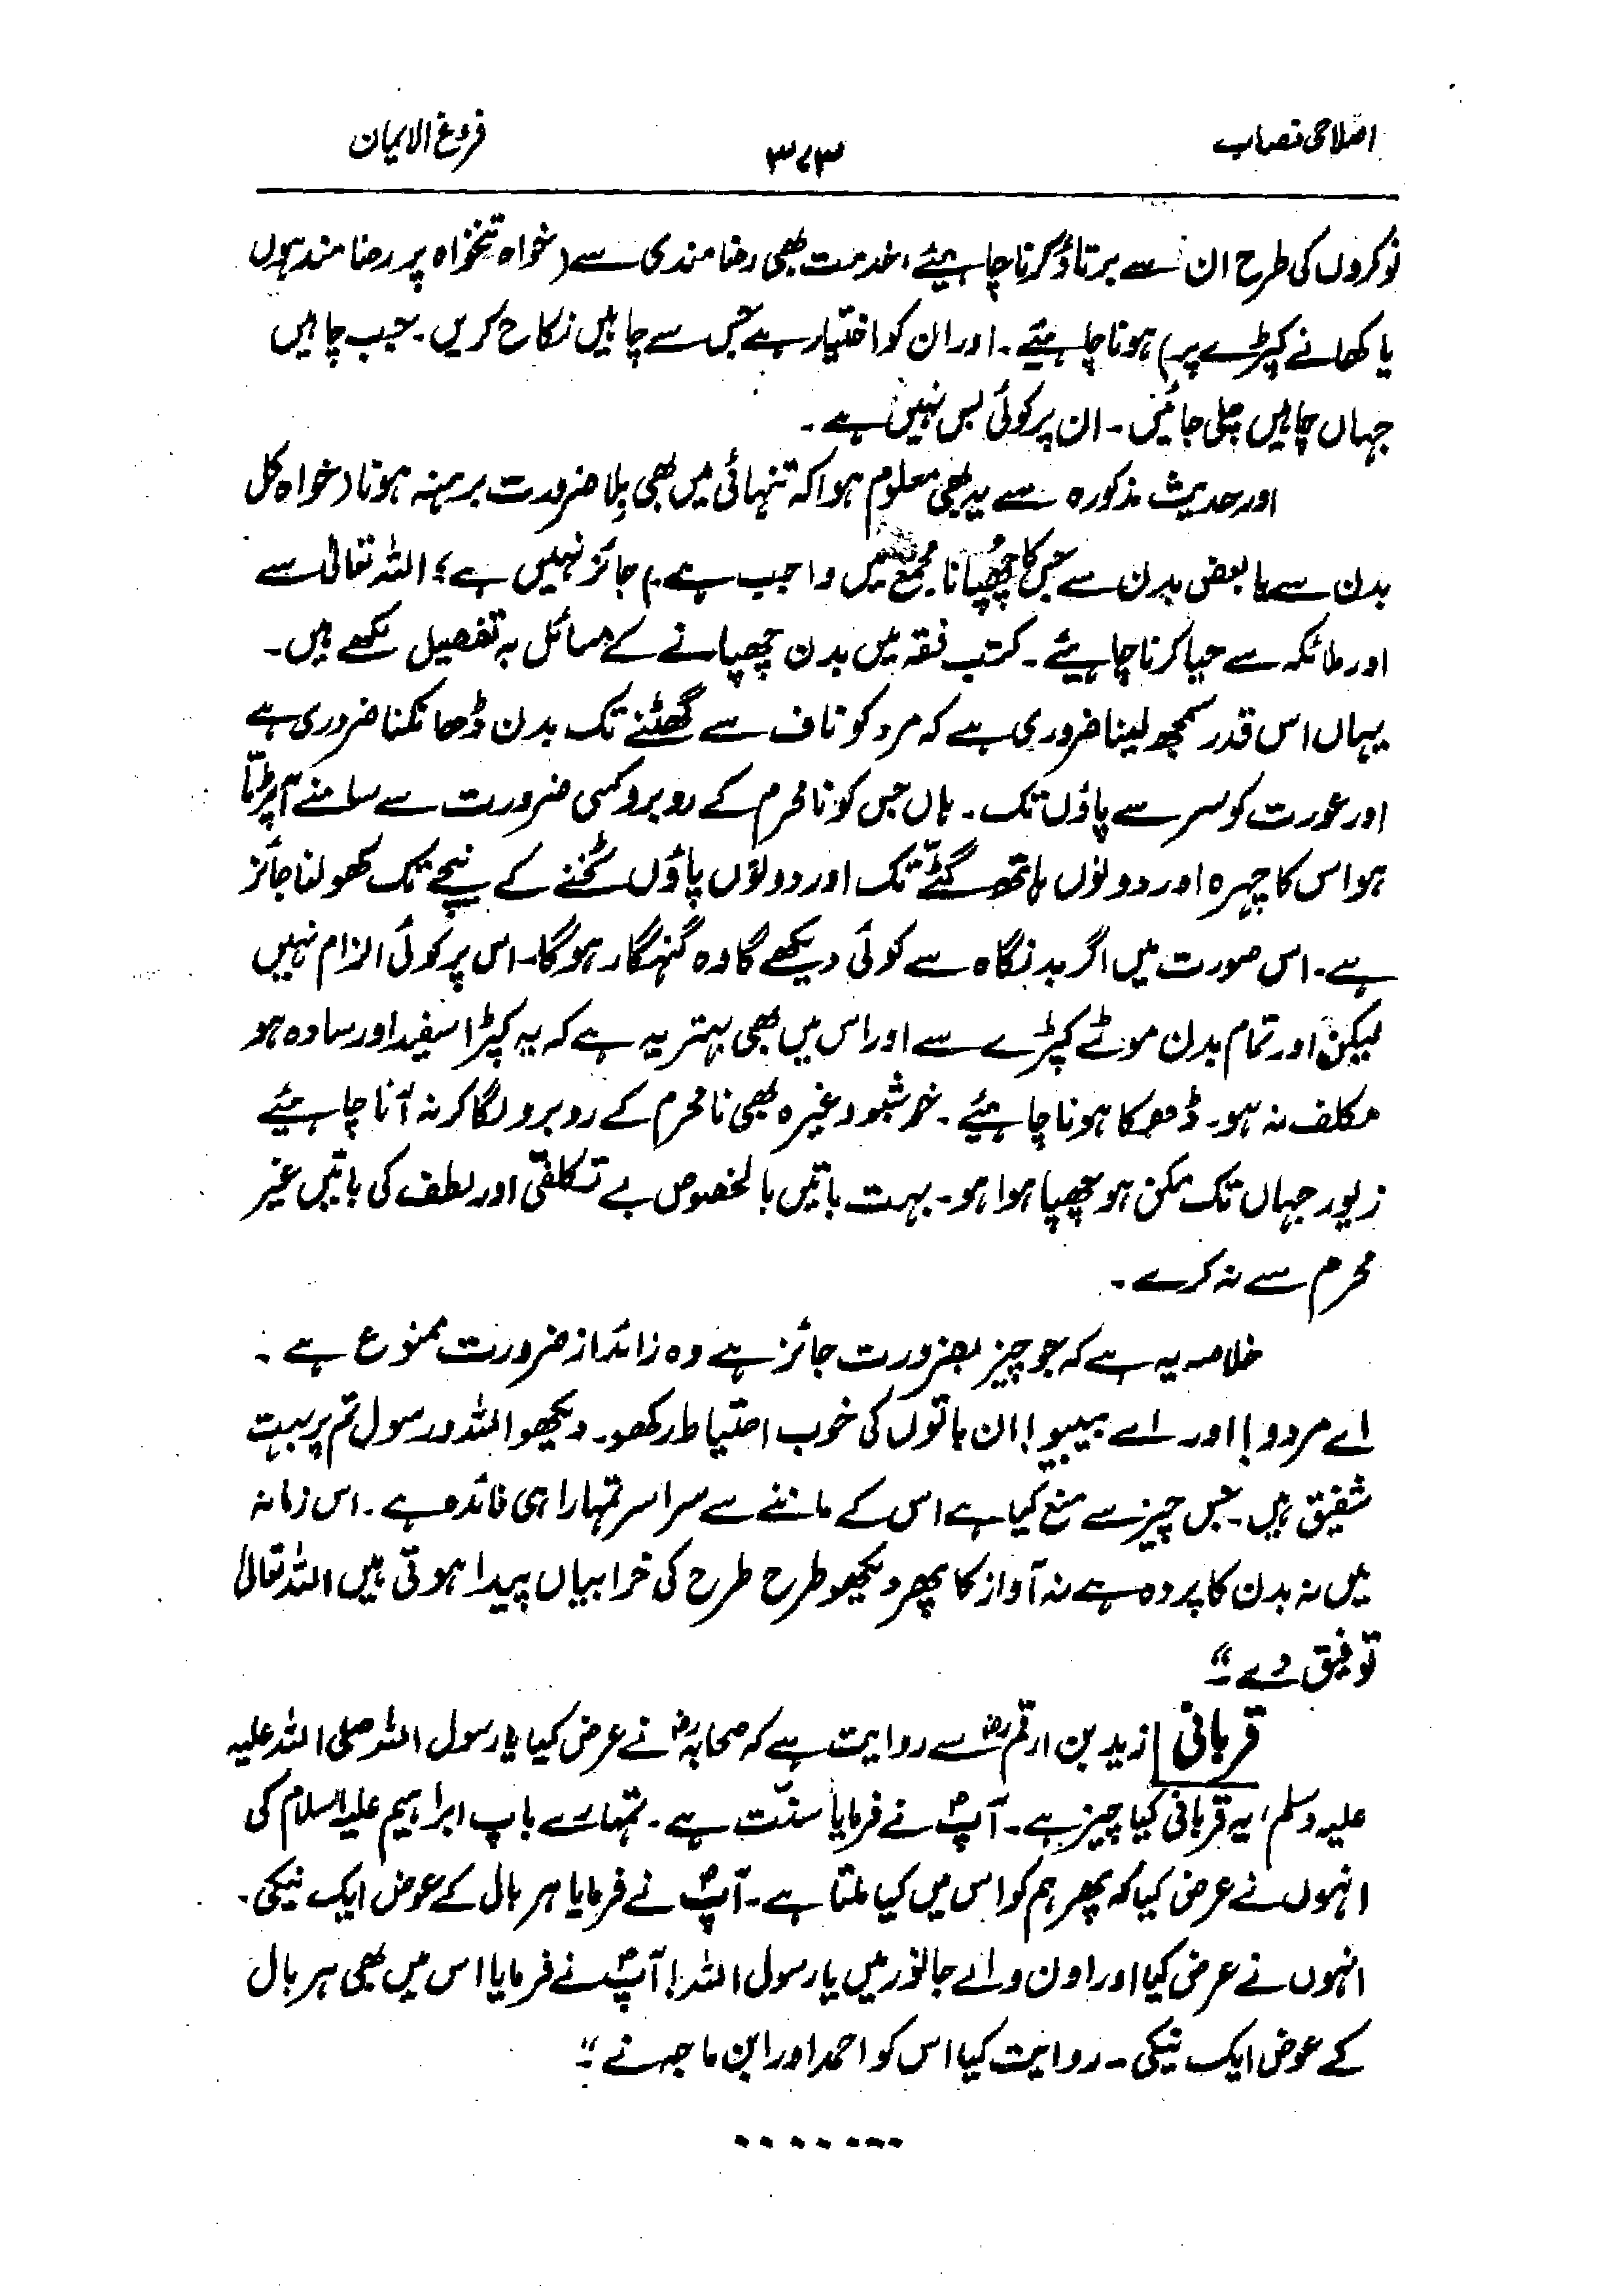 اصلاحی نصاب
۳۷۳
فروغ الایمان
نوکروں کی طرح ان سے برتاؤ کرنا چاہیئے، خدمت بھی رضا مندی سے (خواہ تنخواہ پر رضا مند ہوں
یا کھانے کپڑے پر) ہونا چاہیئے۔ اور ان کو اختیار ہے جس سے چاہیں نکاح کریں۔ جب چاہیں
جہاں چاہیں چلی جائیں۔ ان پر کوئی بس نہیں ہے۔
اور حدیث مذکورہ سے یہ بھی معلوم ہوا کہ تنہائی میں بھی بِلا ضرورت برہنہ ہونا (خواہ کل
بدن سے یا بعض بدن سے جس کا چُھپانا مجمع میں واجب ہے) جائز نہیں ہے؛ اللہ تعالیٰ سے
اور ملائکہ سے حیا کرنا چاہیئے۔ کتب فقہ میں بدن چھپانے کے مسائل بہ تفصیل لکھے ہیں۔
یہاں اس قدر سمجھ لینا ضروری ہے کہ مرد کو ناف سے گھٹنے تک بدن ڈھانکنا ضروری ہے
اور عورت کو سر سے پاؤں تک۔ ہاں جس کو نامحرم کے روبرو کسی ضرورت سے سامنے آپڑتا
ہو اس کا چہرہ اور دونوں ہاتھ گٹّے تک اور دونوں پاؤں ٹخنے کے نیچے تک کھولنا جائز
ہے۔ اس صورت میں اگر بدنگاہ سے کوئی دیکھے گا وہ گنہگار ہوگا۔ اس پر کوئی الزام نہیں
لیکن اور تمام بدن موٹے کپڑے سے اور اس میں بھی بہتر یہ ہے کہ یہ کپڑا سفید اور سادہ ہو
مکلف نہ ہو۔ ڈھکا ہونا چاہیئے۔ خوشبو وغیرہ بھی نامحرم کے روبرو لگا کر نہ آنا چاہیئے
زیور جہاں تک ممکن ہو چھپا ہوا ہو۔ بہت باتیں بالخصوص بے تکلفی اور لطف کی باتیں غیر
محرم سے نہ کرے۔
خلاصہ یہ ہے کہ جو چیز بضرورت جائز ہے وہ زائد از ضرورت ممنوع ہے۔
اے مردو! اور اے بیبیو! ان باتوں کی خوب احتیاط رکھو۔ دیکھو اللہ و رسول تم پر بہت
شفیق ہیں۔ جس چیز سے منع کیا ہے اس کے ماننے سے سراسر تمہارا ہی فائدہ ہے۔ اس زمانہ
میں نہ بدن کا پردہ ہے نہ آواز کا پھر دیکھو طرح طرح کی خرابیاں پیدا ہوتی ہیں اللہ تعالیٰ
توفیق دے۔“
قربانی زید بن ارقمؓ سے روایت ہے کہ صحابہؓ نے عرض کیا یا رسول اللہ صلی اللہ علیہ
علیہ وسلم، یہ قربانی کیا چیز ہے۔ آپؐ نے فرمایا سنّت ہے۔ تمہارے باپ ابراہیم علیہ السلام کی
انہوں نے عرض کیا کہ پھر ہم کو اس میں کیا ملتا ہے۔ آپؐ نے فرمایا ہر بال کے عوض ایک نیکی۔
انہوں نے عرض کیا اور اون والے جانور میں یا رسول اللہ! آپؐ نے فرمایا اس میں بھی ہر بال
کے عوض ایک نیکی۔ روایت کیا اس کو احمد اور ابن ماجہ نے۔“